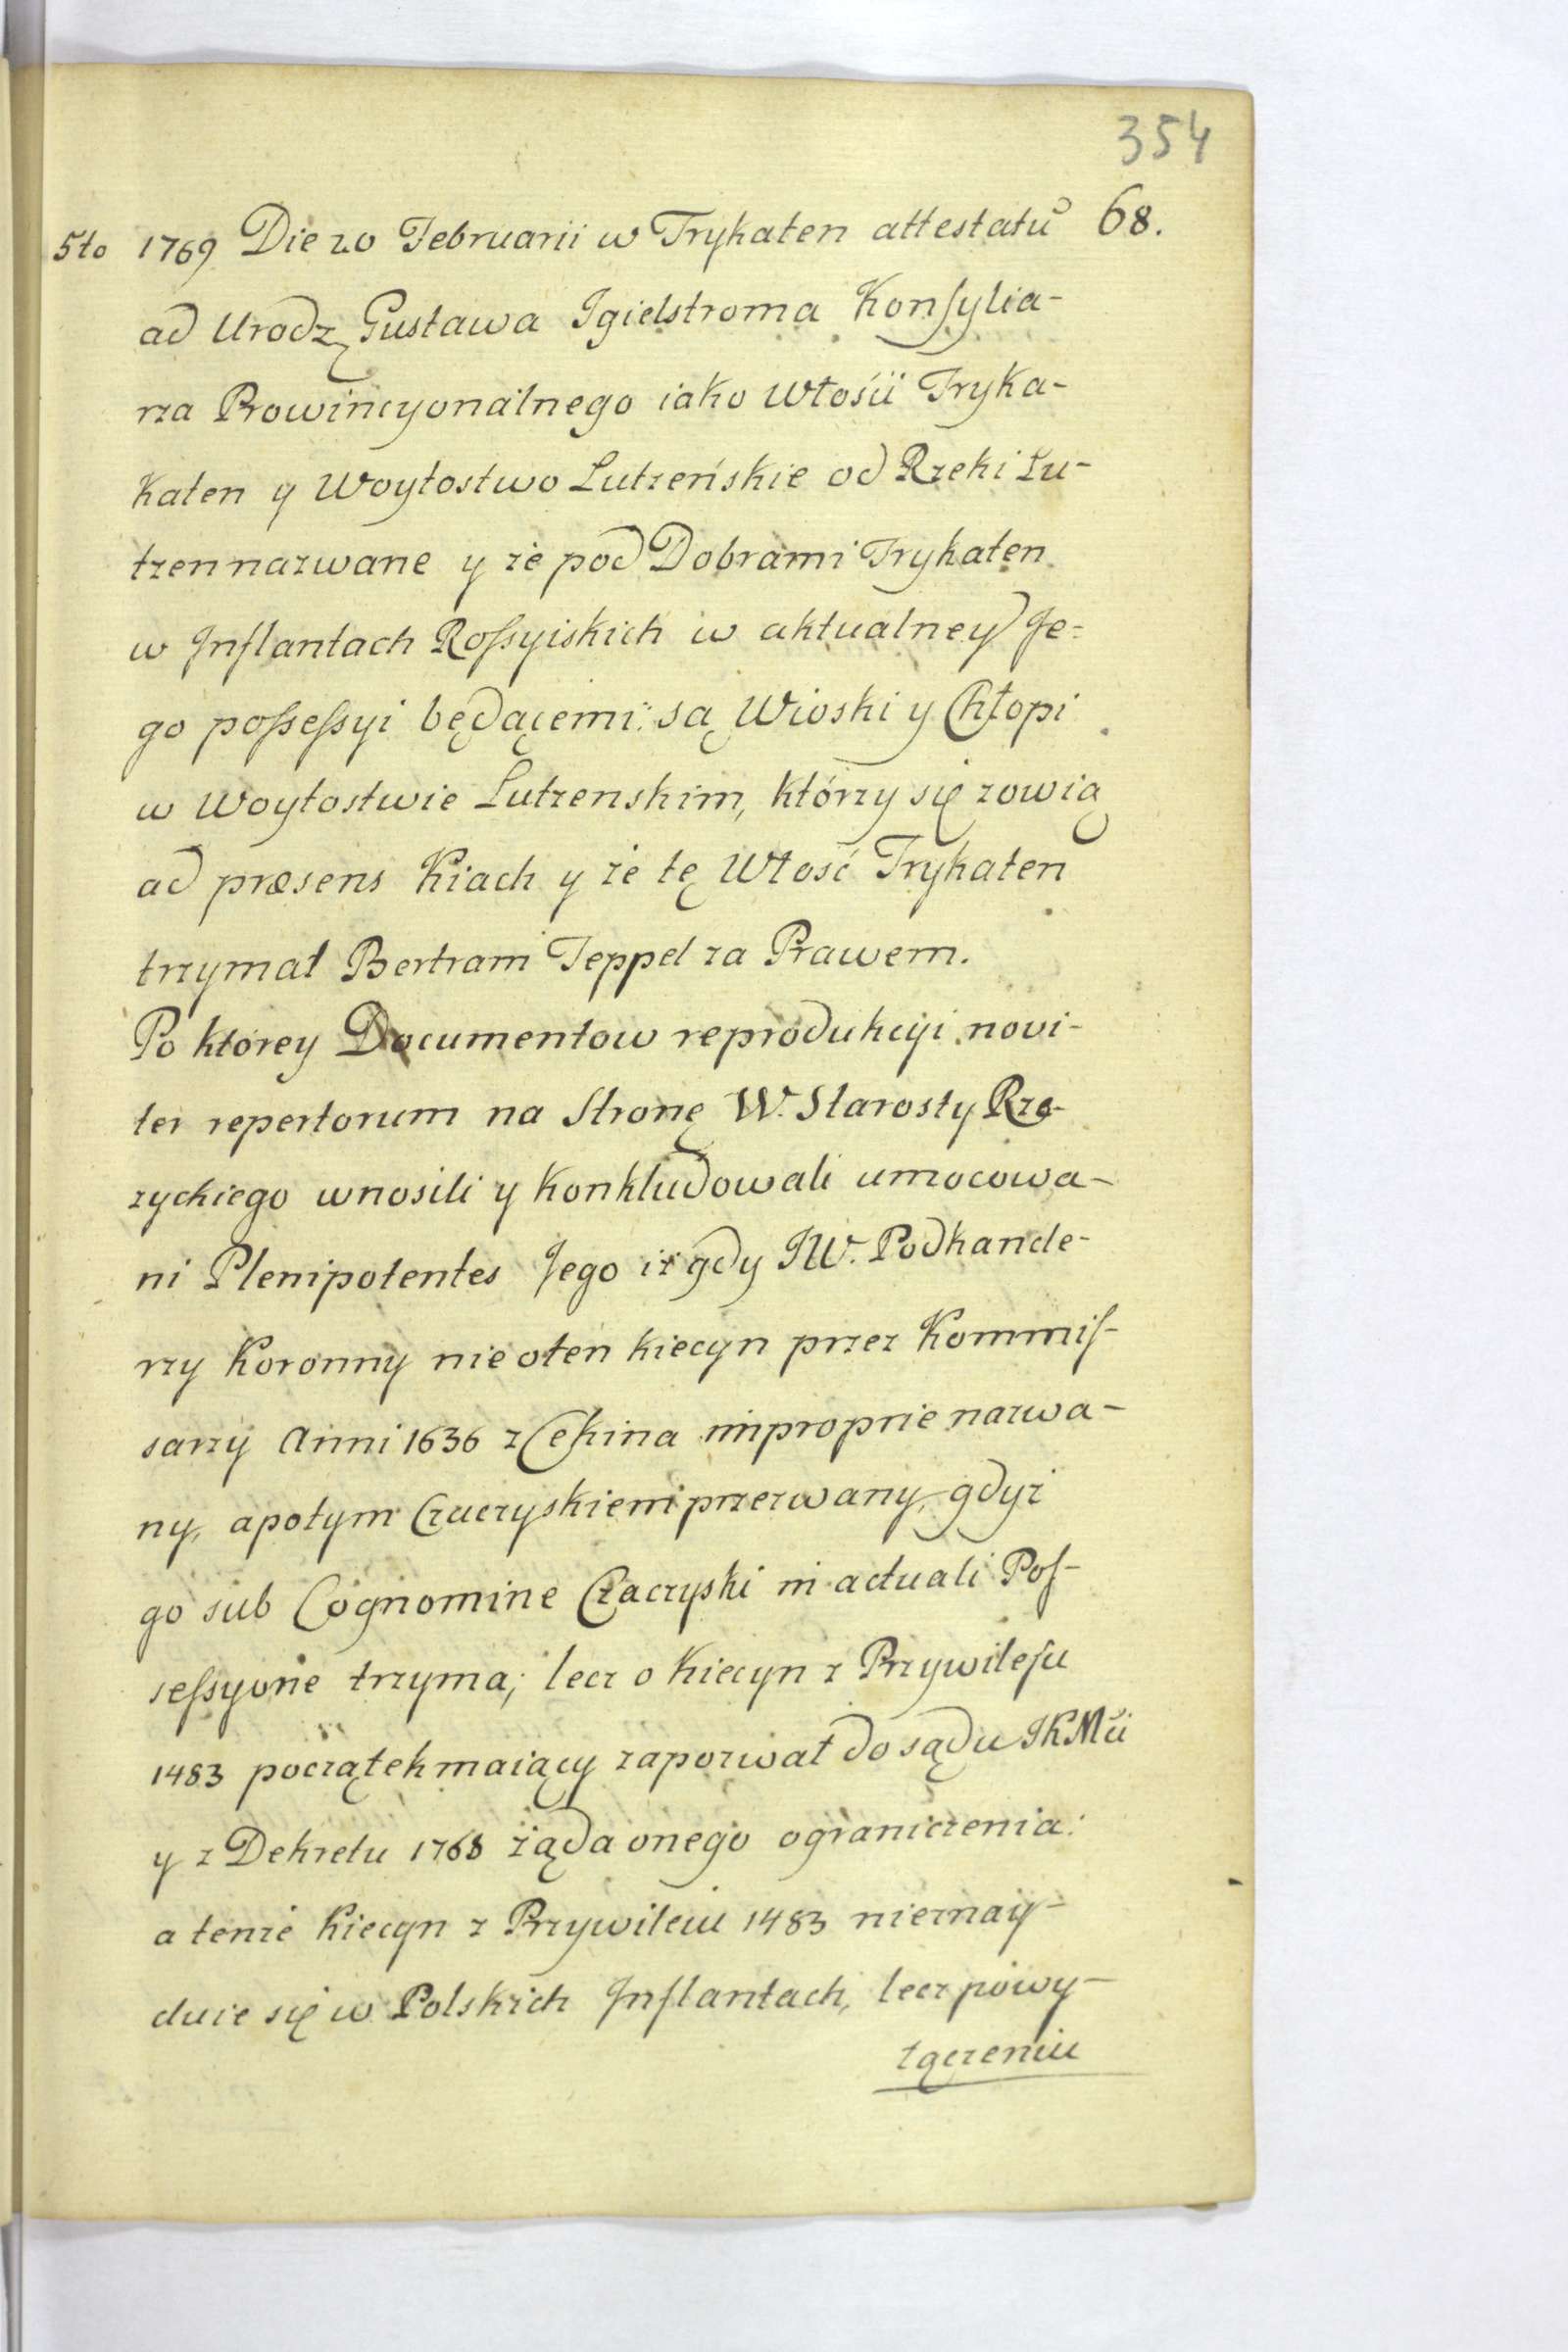 354
68.
5to 1769 Die 20 Februarii w Trykaten attestatū
ad Urodz. Gustawa Igielstroma Konsylia-
rza Prowincyonalnego iako Włości Tryka-
katen y Woytostwo Lutzeńskie od Rzeki Lu-
tzen nazwane y że pod Dobrami Trykaten
w Inflantach Rossyiskich w aktualney Je-
go possessyi będącemi są Wioski y Chłopi
w Woytostwie Lutzenskim, którzy się zowią
ad præsens Kiach y że tę Włość Trykaten
trzymał Bertram Jeppel za Prawem.
Po ktorey Documentow reprodukcyi novi-
ter repertorum na Stronę W. Starosty Rze-
zyckiego wnosili y konkludowali umocowa-
ni Plenipotentes Jego iż gdy JW. Podkancle-
rzy Koronny nie o ten kiecyn przez Kommis-
sarzy Anni 1636 z Cekina improprie nazwa-
ny, a potym Czaczyskiem przezwany, gdyż
go sub Cognomine Czaczyski in actuali Pos-
sessyone trzyma; lecz o Kiecyn z Przywileju
1483 początek maiący zapozwał do sądu JKMci
y z Dekretu 1768 żąda onego ograniczenia:
a tenże Kiecyn z Przywileiu 1483 nieznay-
duie się w Polskich Inflantach, lecz po wy-
łączeniu